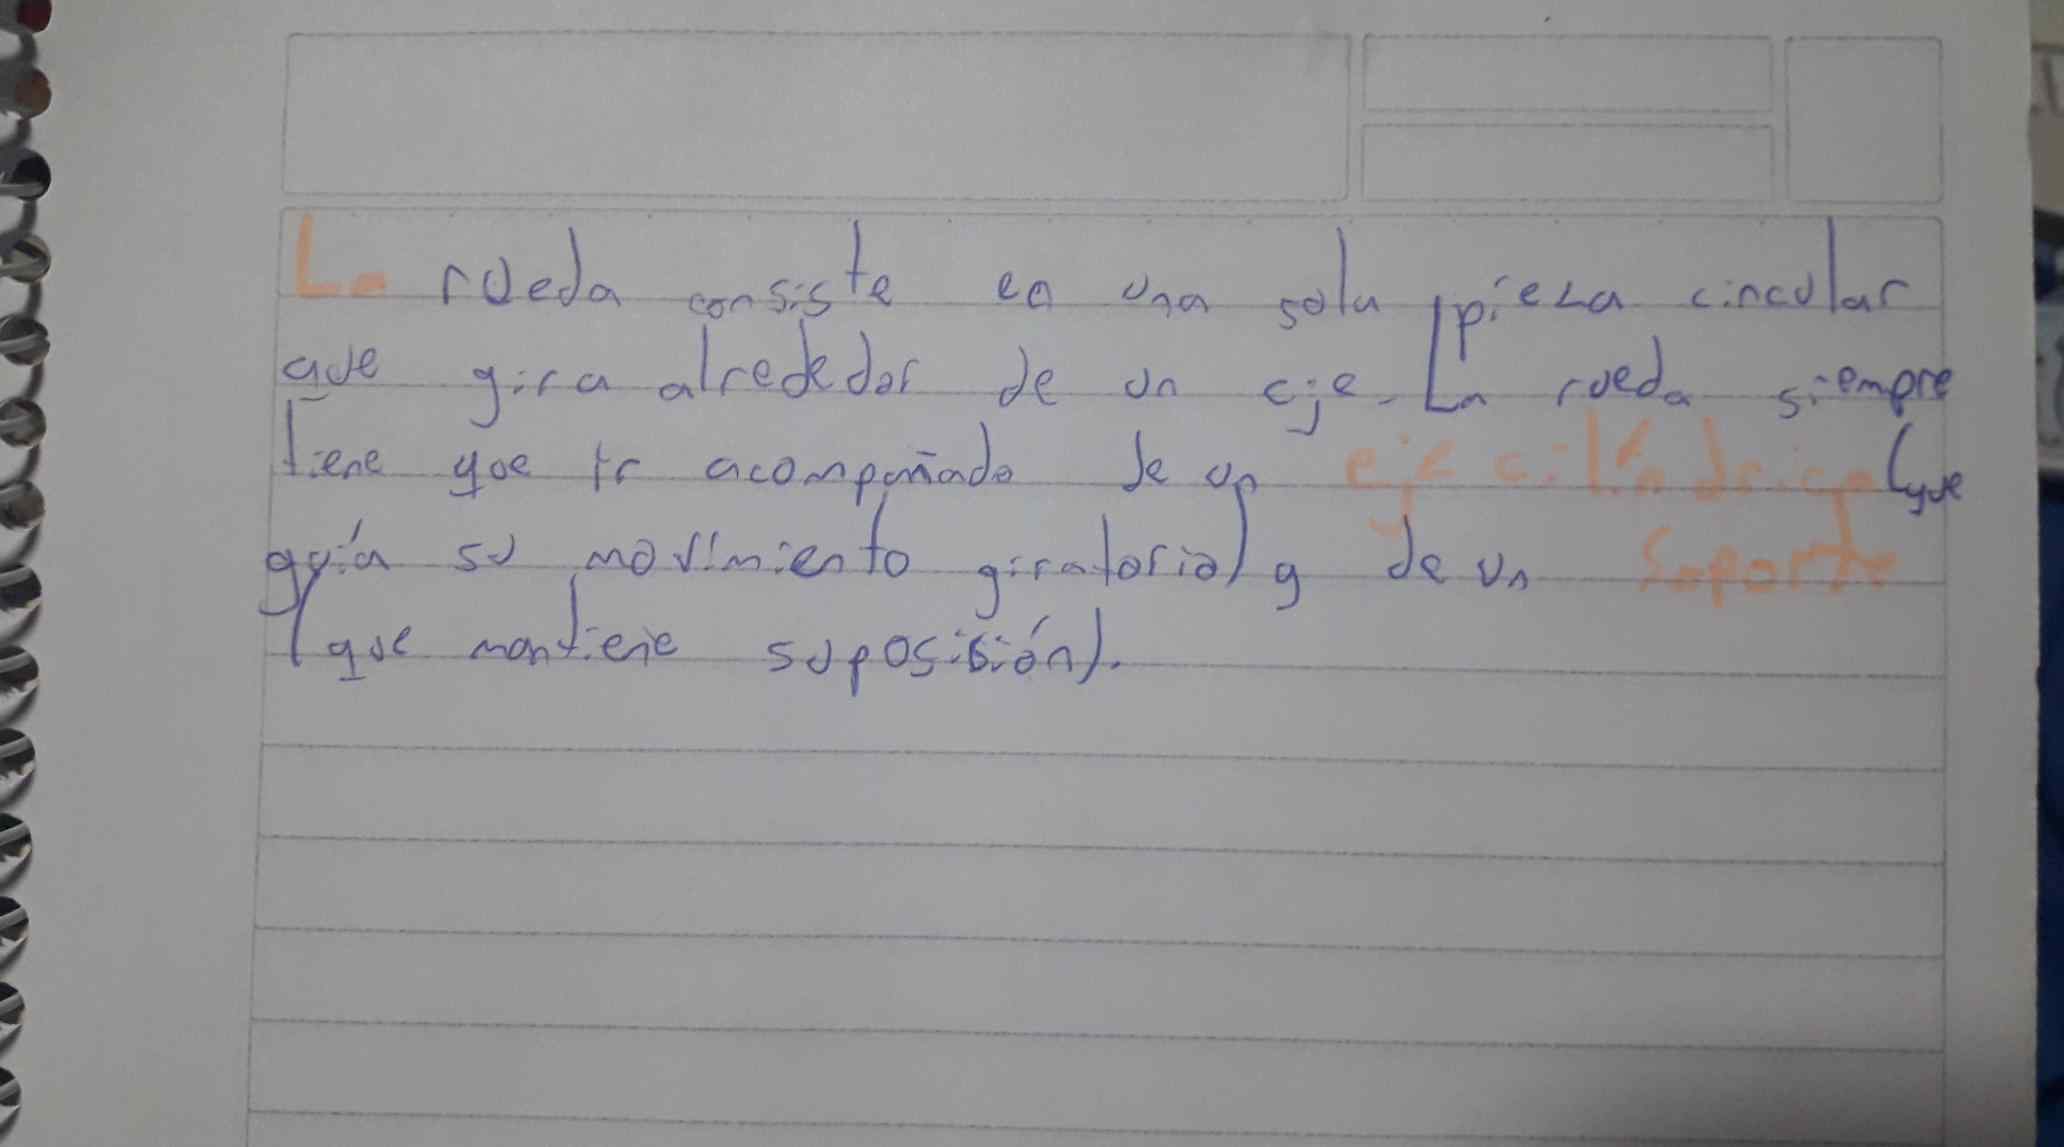 La rueda consiste en una sola pieza circular
que gira alrededor de un eje. La rueda siempre
tiene que ir acompañado de un eje cilíndrico (que
guía su movimiento giratorio) y de un soporte
(que mantiene suposisión).